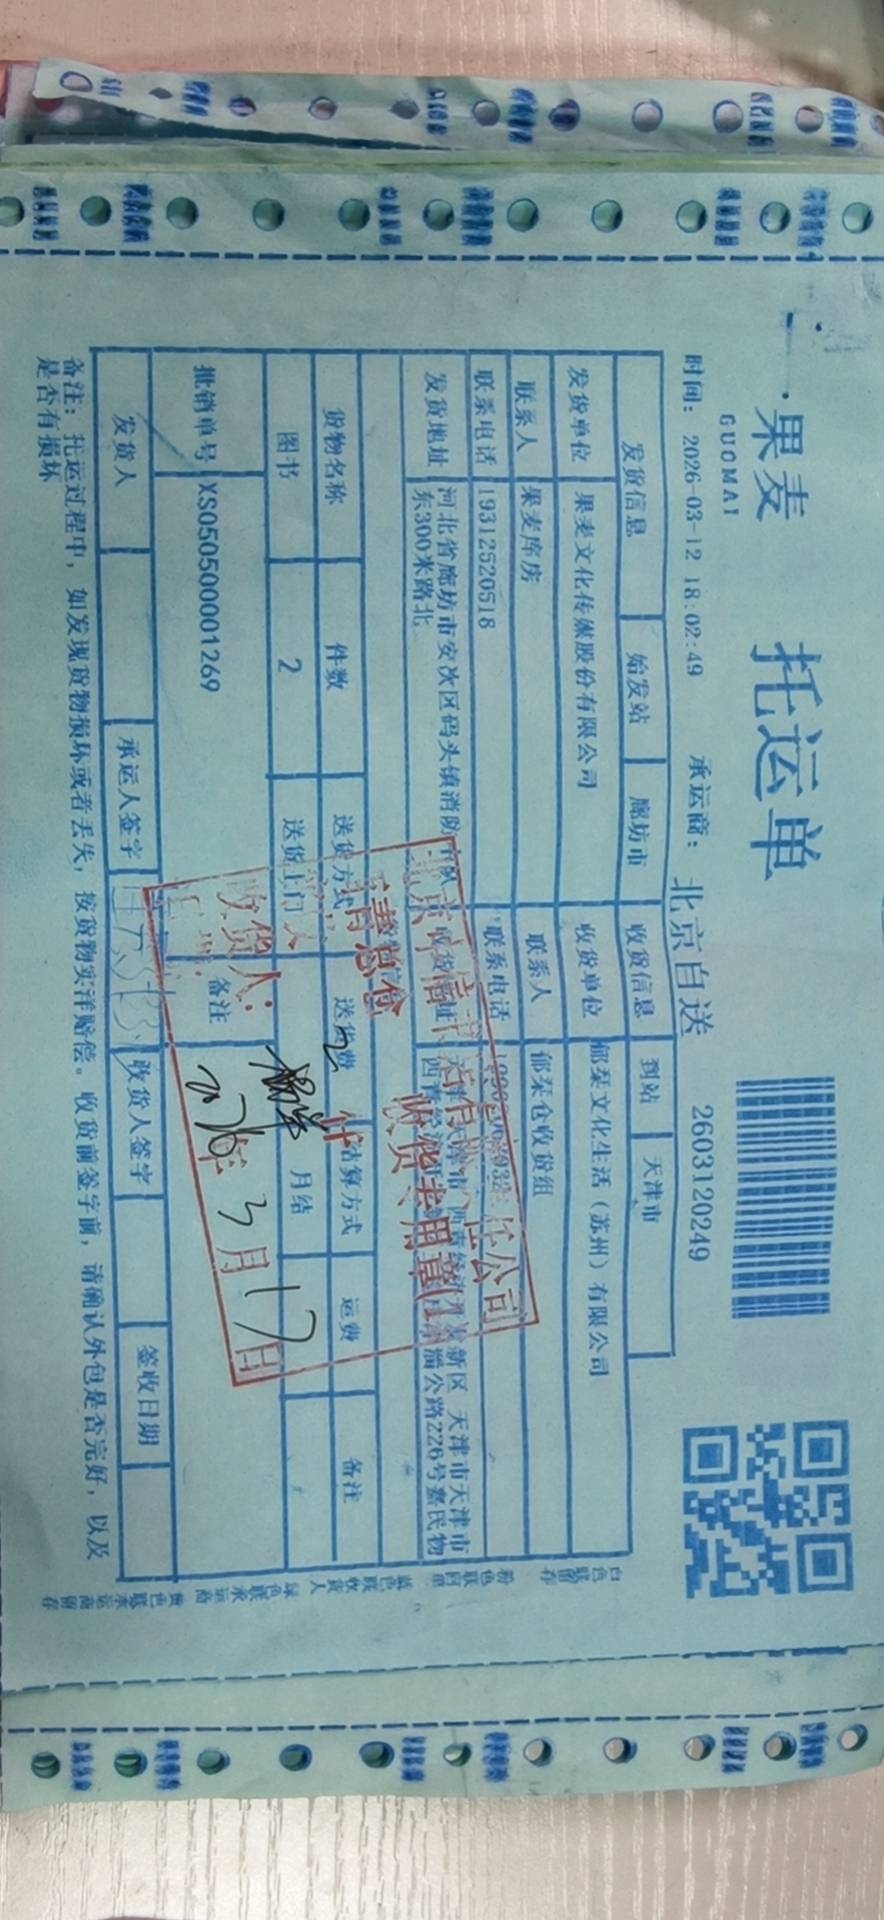 果麦
GUOMAI
托运单
时间：2026-03-12 18:02:49
承运商：北京自送
2603120249
发货信息 始发站 廊坊市 收货信息 到站 天津市
发货单位 果麦文化传媒股份有限公司 收货单位 郁栞文化生活（苏州）有限公司
联系人 果麦库房 联系人 郁栞仓收货组
联系电话 19312520518 联系电话
发货地址 河北省廊坊市安次区码头镇消防
东300米路北
新区 天津市天津市
226号嘉民物
货物名称 件数 送货方式 送货费 结算方式 运费 备注
图书 2 送货上门 月结
批销单号 XS050500001269 备注
发货人 承运人签字 收货人签字 签收日期
备注：托运过程中，如发现货物损坏或者丢失，按货物实洋赔偿。收货前签字前，请确认外包是否完好，以及
是否有损坏
收货专用章
收货人：
26年3月17日